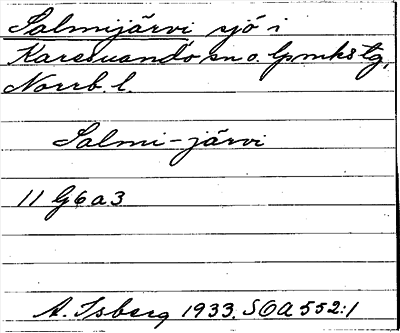 Salmijärvi sjö i
Karesuando sn o. lpmkstg,
Norrb l.
Salmi-järvi
11 G6a3
A. Isberg 1933. SOA 552:1